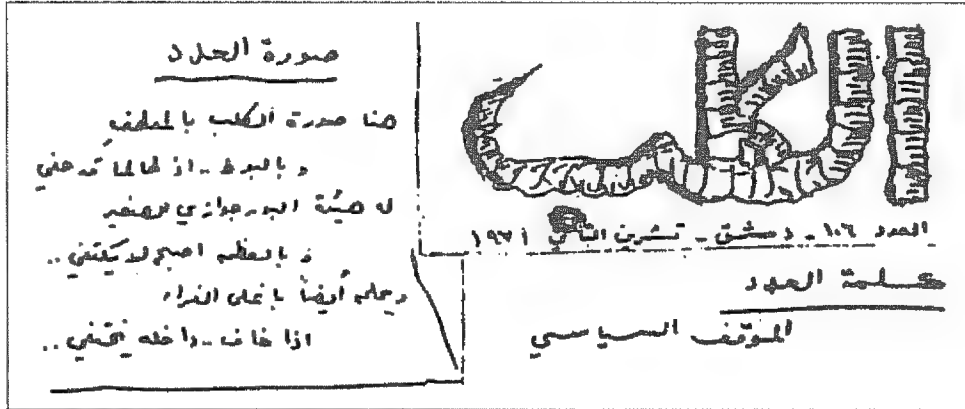 الكلب
العدد ١٠٦ - دمشق - تشرين الثاني ١٩٧١
كلمة العدد
الموقف السياسي
صورة العدد
هنا صورة الكلب بالمعطف
و بالبوط .. اذ لطالما قد حني
له هيئة البورجوازي الصغير
و بالعظم اصبح لا يكتفي ..
يحلم أيضاً بإغلى الفراء
اذا خاف .. داخله يختفي ..